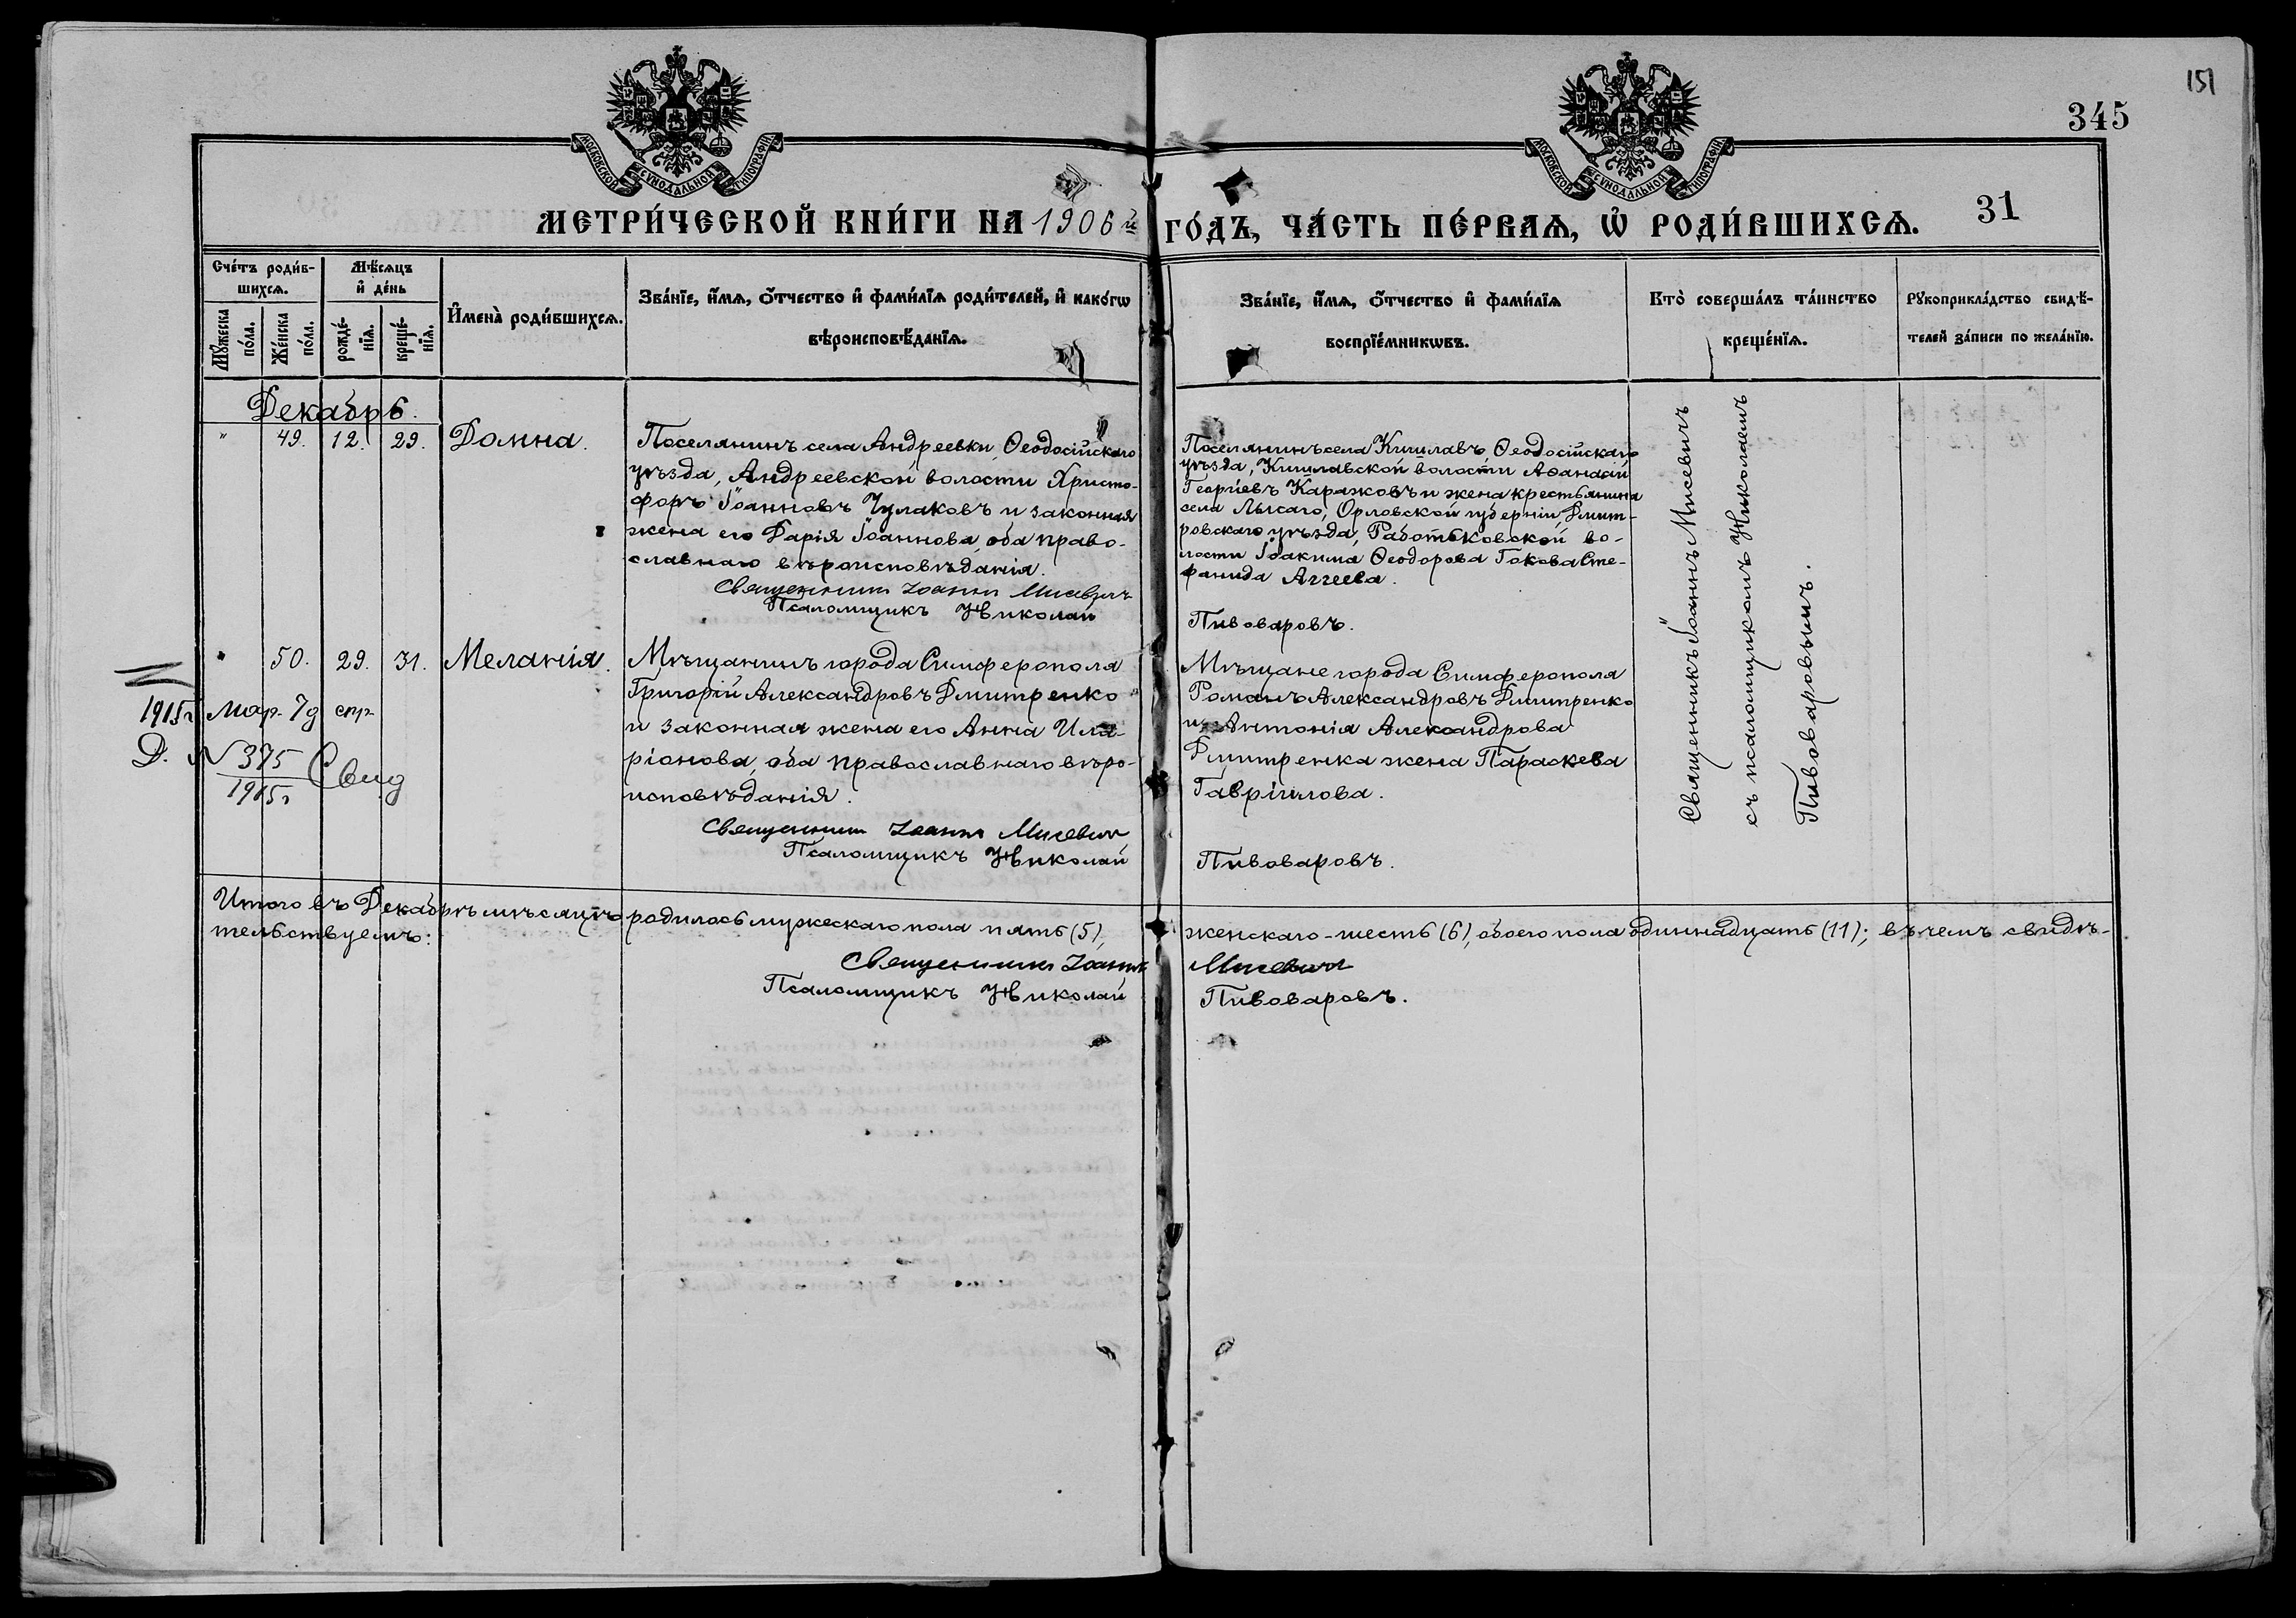 151
345
31
МОСКОВСКОЙ СѴНОДАЛЬНОЙ ТИПОГРАФІИ
МОСКОВСКОЙ СѴНОДАЛЬНОЙ ТИПОГРАФІИ
МЕТРИ́ЧЕСКОЙ КНИ́ГИ НА 1906й ГО́ДЪ, ЧА́СТЬ ПЕ́РВАѦ, Ѽ РОДИ́ВШИХСѦ.
Сче́тъ роди́в-
шихсѧ.
Мѣ́сѧцъ
и҆ де́нь
Мꙋ́жеска
по́ла.
Же́нска
по́ла.
рожде́-
нїѧ.
креще́-
нїѧ.
И҆мена̀ роди́вшихсѧ.
Зва́нїе, и҆́мѧ, ѻ҆́тчество и҆ фами́лїѧ роди́телей, и҆ како́гѡ
вѣроисповѣ́данїѧ.
Зва́нїе, и҆́мѧ, ѻ҆́тчество и҆ фами́лїѧ
воспрїе́мникѡвъ.
Кто̀ соверша́лъ та́инство
креще́нїѧ.
Рꙋкоприкла́дство свидѣ́-
телей за́писи по жела́нїю.
Декабрь.
" 49. 12. 29. Домна.
Поселянинъ села Андреевки Ѳеодосійскаго
уѣзда, Андреевской волости Христо-
форъ Іоанновъ Чулаковъ и законная
жена его Дарія Іоаннова, оба право-
славнаго вѣроисповѣданія.
Священникъ Іоаннъ Мисевичъ
Псаломщикъ Николай
Поселянинъ села Кишлавъ, Ѳеодосійскаго
уѣзда, Кишлавской волости Аѳанасій
Георгіевъ Каражовъ и жена крестьянина
села Лысаго, Орловской губерніи, Дмит-
ровскаго уѣзда, Работьковской во-
лости Іоакима Ѳеодорова Гокова Сте-
фанида Аггеева.
Пивоваровъ.
" 50. 29. 31. Меланія.
Мѣщанинъ города Симферополя
Григорій Александровъ Дмитренко
и законная жена его Анна Ила-
ріонова, оба православнаго вѣро-
исповѣданія.
Священникъ Іоаннъ Мисевичъ
Псаломщикъ Николай
Мѣщане города Симферополя
Романъ Александровъ Дмитренко
и Антонія Александрова
Дмитренка жена Параскева
Гавріилова.
Пивоваровъ.
Священникъ Іоаннъ Мисевичъ
съ псаломщикомъ Николаемъ
Пивоваровымъ.
1915г мар. 7д спр
Д. № 375 Свид
1915г
Итого въ Декабрѣ мѣсяцѣ родилось мужескаго пола пять (5), женскаго - шесть (6), обоего пола одиннадцать (11); въ чемъ свидѣ-
тельствуемъ:
Священникъ Іоаннъ Мисевичъ
Псаломщикъ Николай Пивоваровъ.